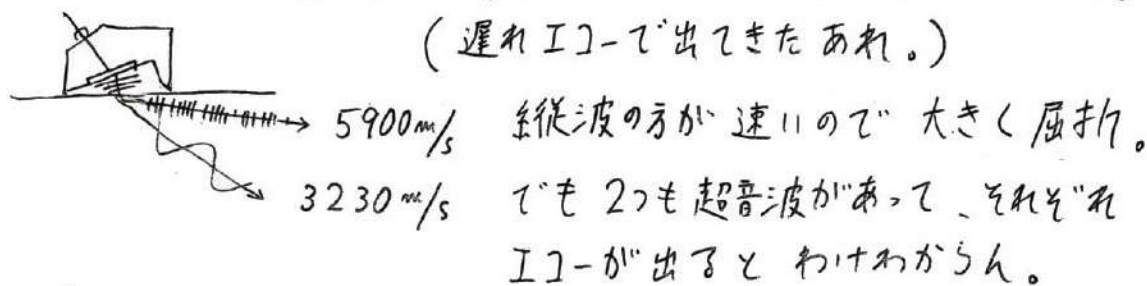 (遅れエコーで出てきたあれ。)
5900m/s 縦波の方が速いので大きく屈折。
3230m/s でも2つも超音波があって、それぞれ
エコーが出るとわけわからん。